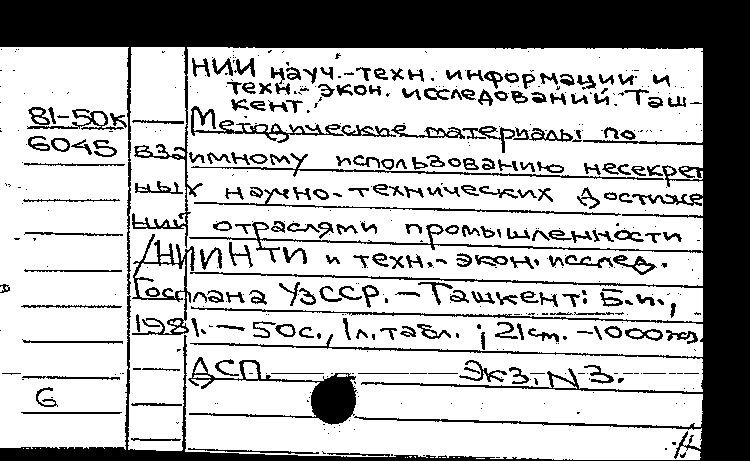 НИИ науч.-техн. информации и
техн.-экон. исследований. Таш-
кент.
81-50к Методические материалы по
6045 взаимному использованию несекрет
ных научно-технических достиже
ний отраслями промышленности
/НИИНТИ и техн.-экон. исслед.
Госплана УзССР. - Ташкент: Б.и.,
1981. - 50с., 1л.табл. ; 21см. - 1000экз.
ДСП. Экз. N 3.
6